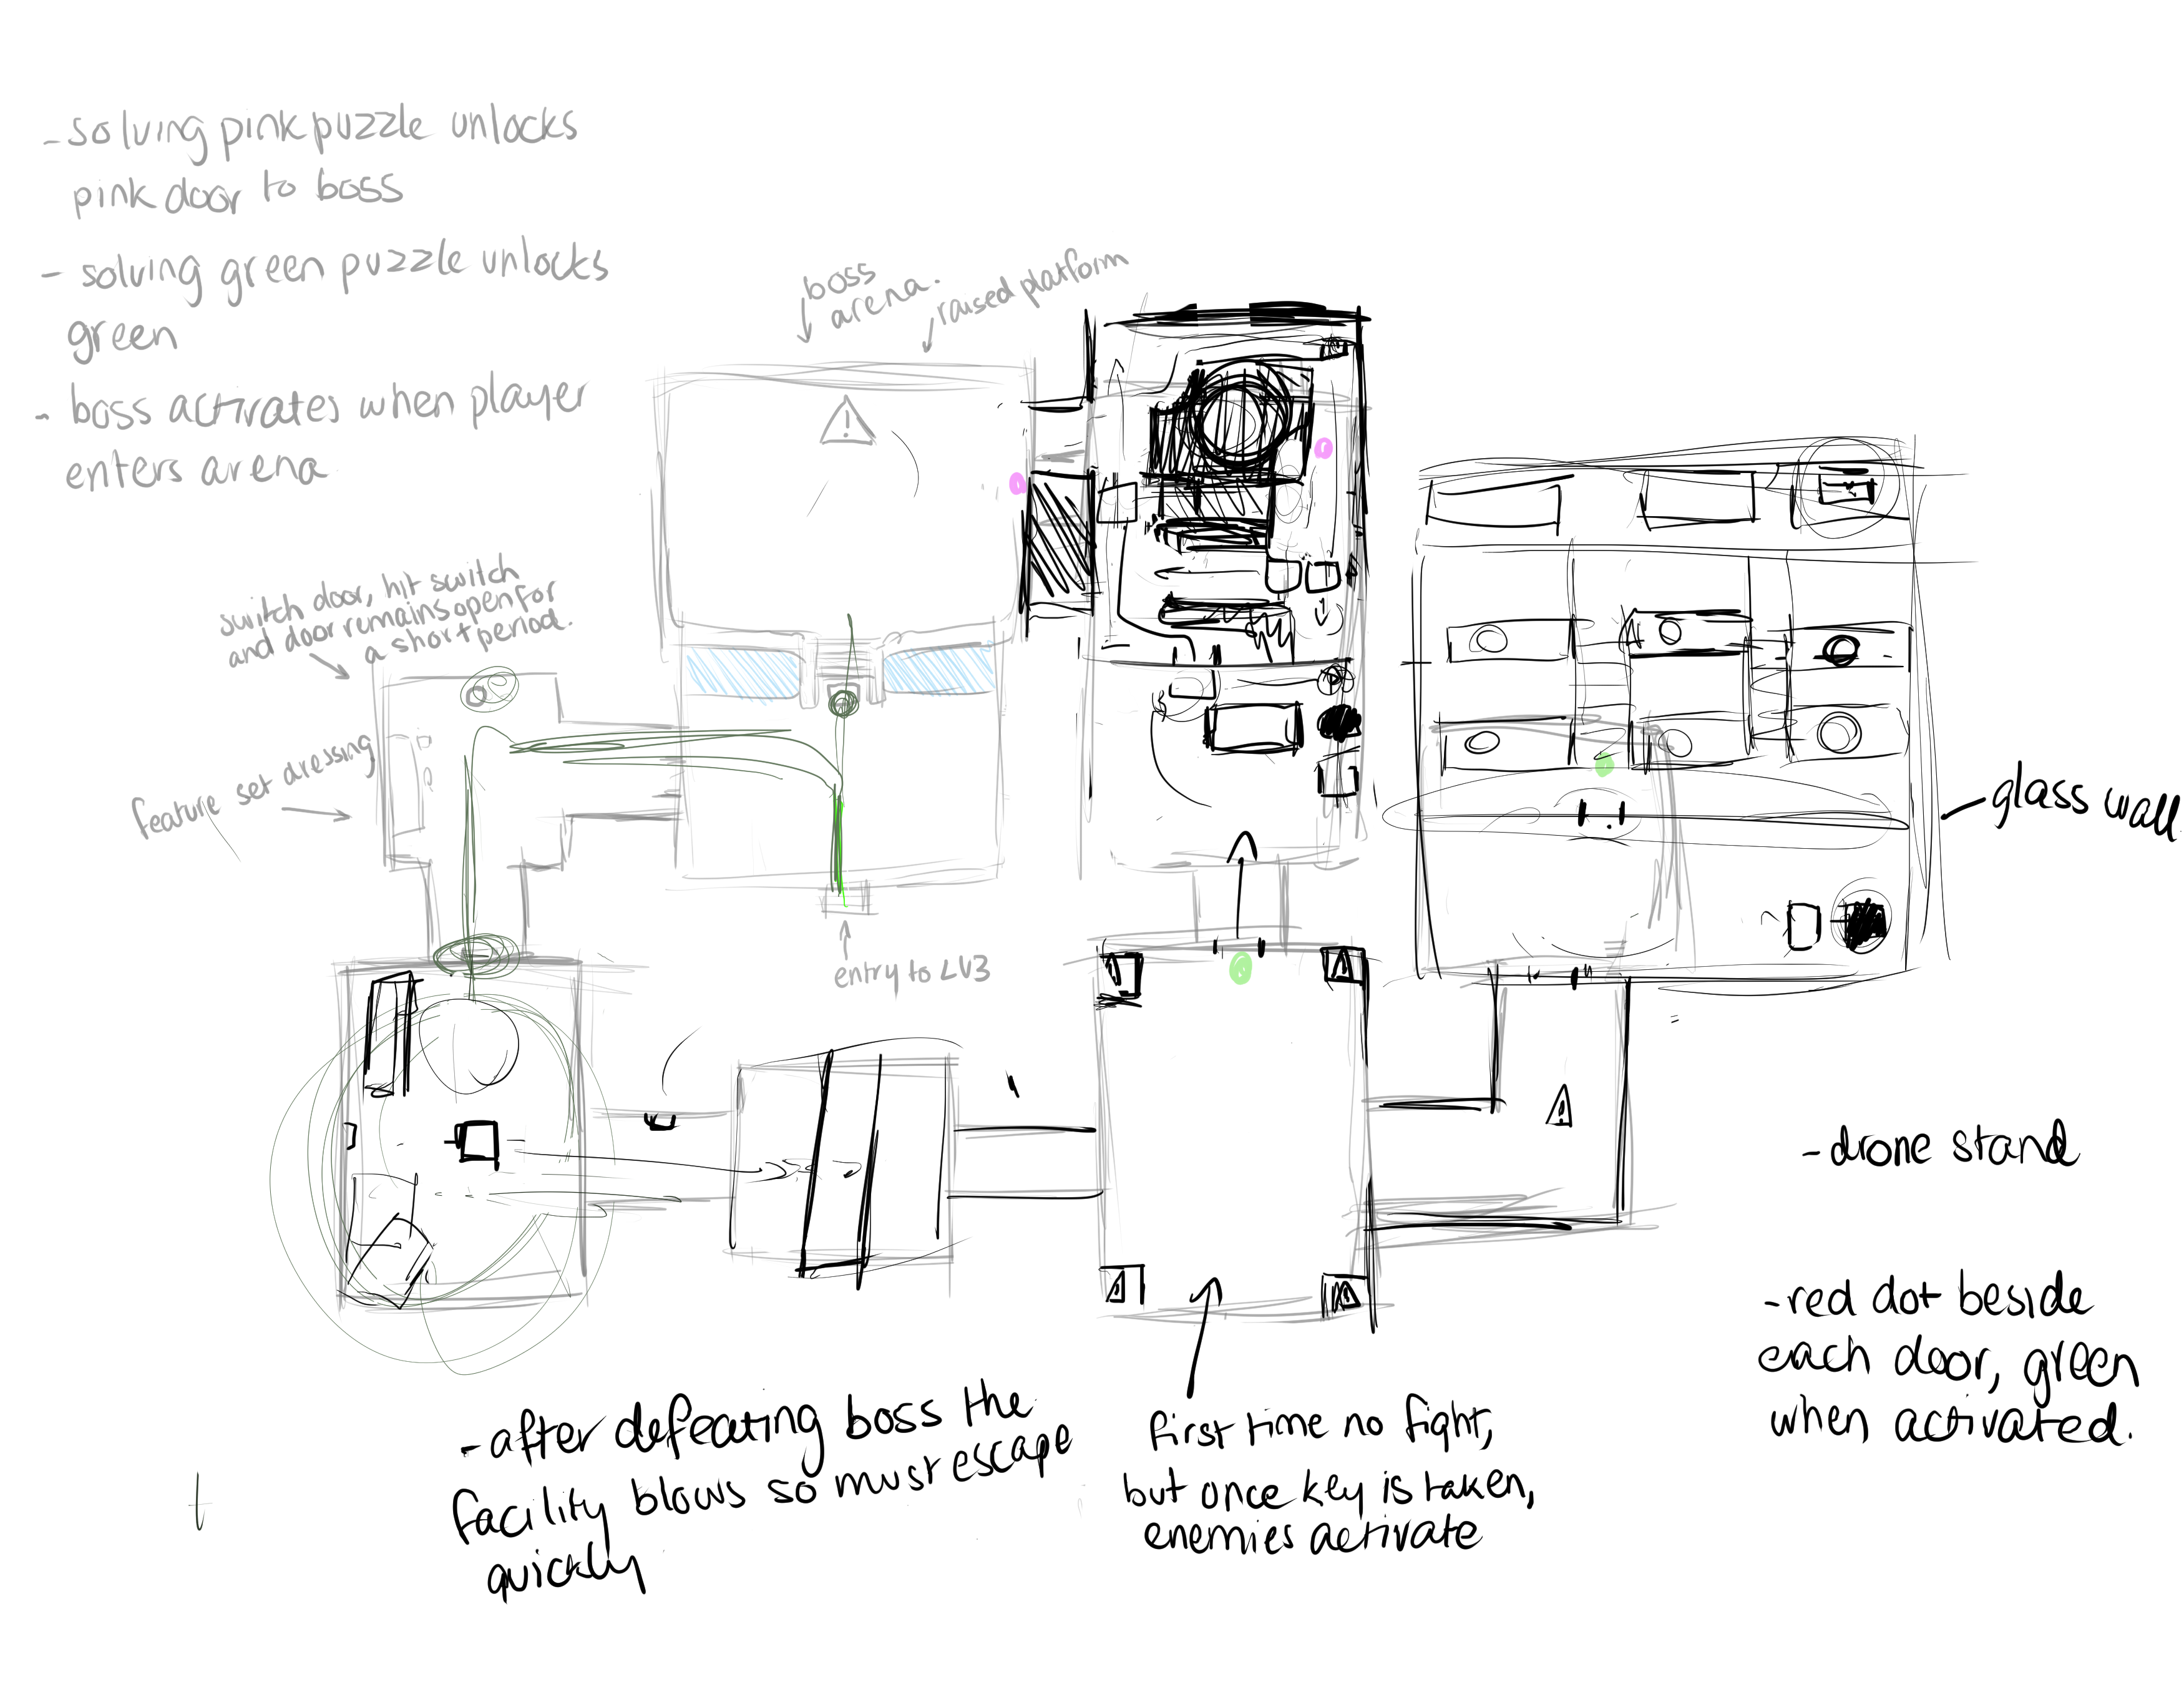 - solving pink puzzle unlocks
pink door to boss
- solving green puzzle unlocks
green
- boss activates when player
enters arena
boss
arena.
raised platform
switch door, hit switch
and door remains open for
a short period.
feature set dressing
entry to LV3
glass wall
- drone stand
- red dot beside
each door, green
when activated.
- after defeating boss the
facility blows so must escape
quickly
first time no fight,
but once key is taken,
enemies activate
t